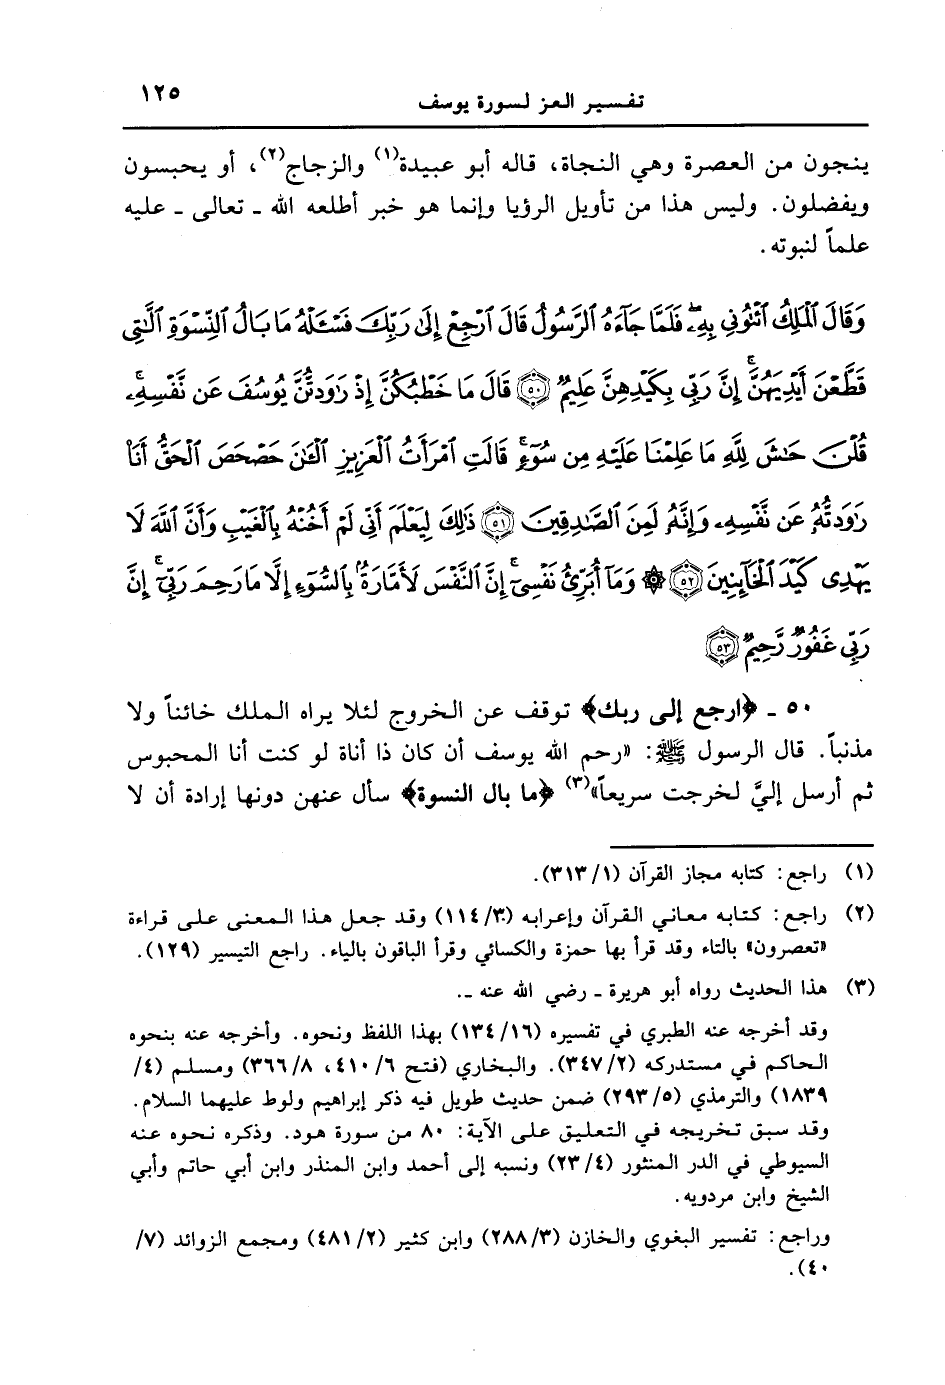 تفسير العز لسورة يوسف ١٢٥
ينجون من العصرة وهي النجاة، قاله أبو عبيدة(١) والزجاج(٢)، أو يحبسون
ويفضلون. وليس هذا من تأويل الرؤيا وإنما هو خبر أطلعه الله ـ تعالى ـ عليه
علماً لنبوته.
وَقَالَ ٱلْمَلِكُ ٱئْتُونِي بِهِۦۖ فَلَمَّا جَآءَهُ ٱلرَّسُولُ قَالَ ٱرْجِعْ إِلَىٰ رَبِّكَ فَسْـَٔلْهُ مَا بَالُ ٱلنِّسْوَةِ ٱلَّٰتِي
قَطَّعْنَ أَيْدِيَهُنَّۚ إِنَّ رَبِّي بِكَيْدِهِنَّ عَلِيمٌ ﴿٥٠﴾ قَالَ مَا خَطْبُكُنَّ إِذْ رَٰوَدتُّنَّ يُوسُفَ عَن نَّفْسِهِۦۚ
قُلْنَ حَٰشَ لِلَّهِ مَا عَلِمْنَا عَلَيْهِ مِن سُوٓءٍۚ قَالَتِ ٱمْرَأَتُ ٱلْعَزِيزِ ٱلْـَٰٔنَ حَصْحَصَ ٱلْحَقُّ أَنَا۠
رَٰوَدتُّهُۥ عَن نَّفْسِهِۦ وَإِنَّهُۥ لَمِنَ ٱلصَّٰدِقِينَ ﴿٥١﴾ ذَٰلِكَ لِيَعْلَمَ أَنِّي لَمْ أَخُنْهُ بِٱلْغَيْبِ وَأَنَّ ٱللَّهَ لَا
يَهْدِى كَيْدَ ٱلْخَآئِنِينَ ﴿٥٢﴾ ۞ وَمَآ أُبَرِّئُ نَفْسِيٓۚ إِنَّ ٱلنَّفْسَ لَأَمَّارَةٌۢ بِٱلسُّوٓءِ إِلَّا مَا رَحِمَ رَبِّيٓۚ إِنَّ
رَبِّي غَفُورٌ رَّحِيمٌ ﴿٥٣﴾
٥٠ ـ ﴿ارجع إلى ربك﴾ توقف عن الخروج لئلا يراه الملك خائناً ولا
مذنباً. قال الرسول ﷺ: «رحم الله يوسف أن كان ذا أناة لو كنت أنا المحبوس
ثم أرسل إليَّ لخرجت سريعاً»(٣) ﴿ما بال النسوة﴾ سأل عنهن دونها إرادة أن لا
(١) راجع: كتابه مجاز القرآن (٣١٣/١).
(٢) راجع: كتابه معاني القرآن وإعرابه (١١٤/٣) وقد جعل هذا المعنى على قراءة
«تعصرون» بالتاء وقد قرأ بها حمزة والكسائي وقرأ الباقون بالياء. راجع التيسير (١٢٩).
(٣) هذا الحديث رواه أبو هريرة ـ رضي الله عنه ـ.
وقد أخرجه عنه الطبري في تفسيره (١٣٤/١٦) بهذا اللفظ ونحوه. وأخرجه عنه بنحوه
الحاكم في مستدركه (٣٤٧/٢). والبخاري (فتح ٤١٠/٦، ٣٦٦/٨) ومسلم (٤/
١٨٣٩) والترمذي (٢٩٣/٥) ضمن حديث طويل فيه ذكر إبراهيم ولوط عليهما السلام.
وقد سبق تخريجه في التعليق على الآية: ٨٠ من سورة هود. وذكره نحوه عنه
السيوطي في الدر المنثور (٢٣/٤) ونسبه إلى أحمد وابن المنذر وابن أبي حاتم وأبي
الشيخ وابن مردويه.
وراجع: تفسير البغوي والخازن (٢٨٨/٣) وابن كثير (٤٨١/٢) ومجمع الزوائد (٧/
٤٠).